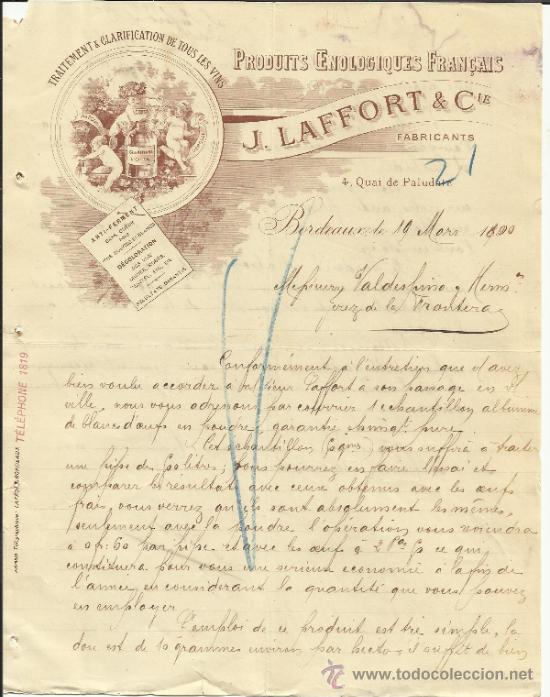 TRAITEMENT & CLARIFICATION DE TOUS LES VINS
PRODUITS ŒNOLOGIQUES FRANÇAIS
J. LAFFORT & CIE
FABRICANTS
4, Quai de Paludate
21
ANTI-FERMENT
DÉCOLORATION
Bordeaux, le 19 Mars 1890
Messieurs Valdespino y Herm.ⁿᵒ
Jerez de la Frontera
TÉLÉPHONE 1819
Conformément à l'entretien que
bien voulu accorder à Monsieur Laffort à son passage en
ville, nous vous adressons par courrier 1 échantillon albumine
de blancs d'œufs en poudre, garantie chimiqt pure.
Cet échantillon vous suffira à traiter
une pipe de litres; vous pourrez en faire l'essai et
comparer le résultat avec ceux obtenus avec les œufs
frais, vous verrez qu'ils sont absolument les mêmes,
seulement avec la poudre l'opération vous reviendra
à 0f.60 par pipe et avec les œufs à ce qui
constituera pour vous une sérieuse économie à la fin de
l'année, en considérant la quantité que vous pouvez
en employer.
L'emploi de ce produit est très simple, la
dose est de 10 grammes environ par hecto, il suffit de bien
todocoleccion.net